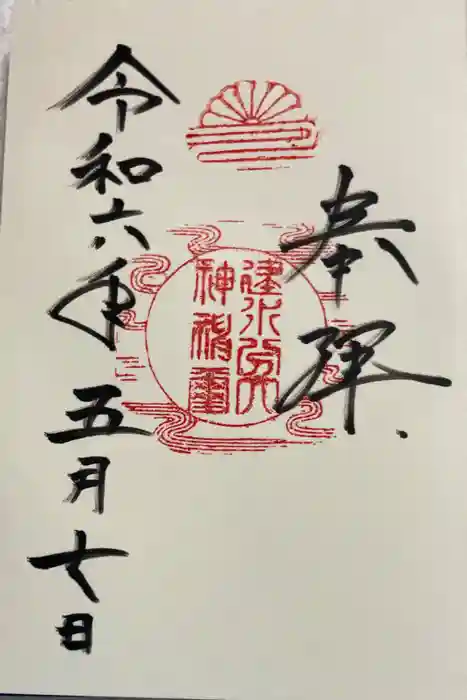 奉拝
建水分
神社璽
令和六年五月七日